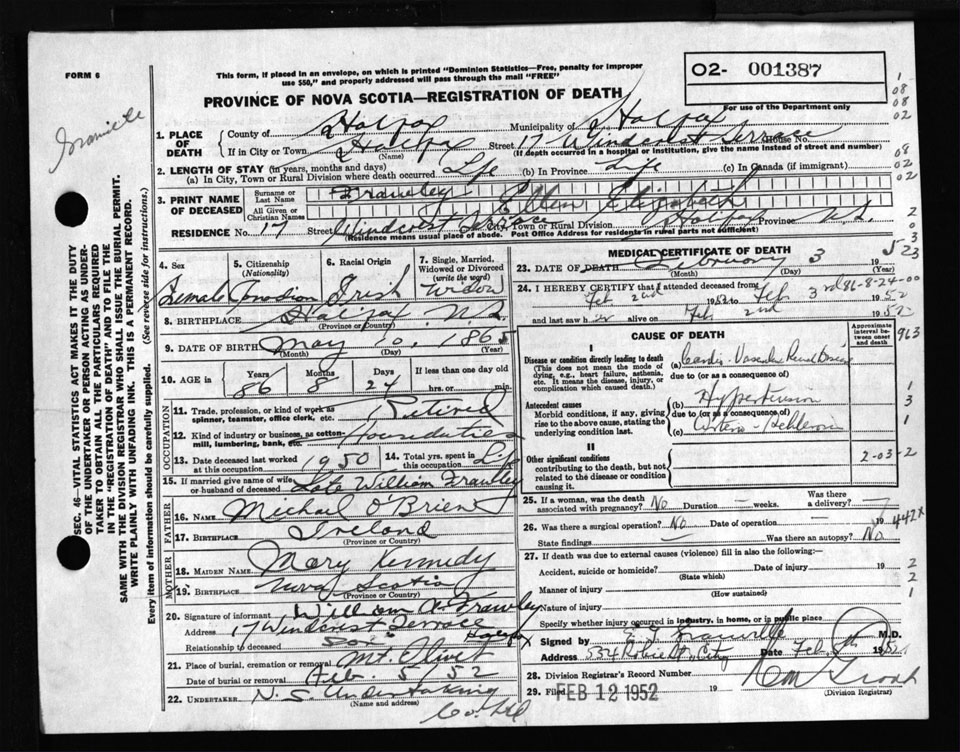 FORM 6
This form, if placed in an envelope, on which is printed "Dominion Statistics—Free, penalty for improper
use $50," and properly addressed will pass through the mail "FREE"
O2- 001387
For use of the Department only
PROVINCE OF NOVA SCOTIA—REGISTRATION OF DEATH
1. PLACE OF DEATH
County of Halifax Municipality of Halifax
If in City or Town Halifax Street 17 Windcrest Terrace House No.
(Name) (If death occurred in a hospital or institution, give the name instead of street and number)
2. LENGTH OF STAY (in years, months and days)
(a) In City, Town or Rural Division where death occurred Life (b) In Province Life (c) In Canada (if immigrant)
3. PRINT NAME OF DECEASED
Surname or Last Name Frawley
All Given or Christian Names Ellen Elizabeth
RESIDENCE No. 17 Street Windcrest Terrace City, Town or Rural Division Halifax Province N.S.
(Residence means usual place of abode. Post Office Address for residents in rural parts not sufficient)
4. Sex Female
5. Citizenship (Nationality) Canadian
6. Racial Origin Irish
7. Single, Married, Widowed or Divorced (write the word) Widow
8. BIRTHPLACE Halifax N.S.
(Province or Country)
9. DATE OF BIRTH May 10, 1865
(Month) (Day) (Year)
10. AGE in Years 86 Months 8 Days 24 If less than one day
hrs. or min.
OCCUPATION
11. Trade, profession, or kind of work as spinner, teamster, office clerk, etc. Retired
12. Kind of industry or business, as cotton-mill, lumbering, bank, etc. Houseduties
13. Date deceased last worked at this occupation 1950
14. Total yrs. spent in this occupation Life
15. If married give name of wife or husband of deceased Late William Frawley
FATHER
16. NAME Michael O'Brien
17. BIRTHPLACE Ireland
(Province or Country)
MOTHER
18. MAIDEN NAME Mary Kennedy
19. BIRTHPLACE Nova Scotia
(Province or Country)
20. Signature of informant William A. Frawley
Address 17 Windcrest Terrace Halifax
Relationship to deceased Son
21. Place of burial, cremation or removal Mt. Olivet
Date of burial or removal Feb. 5 52
22. UNDERTAKER N. S. Undertaking
(Name and address)
Co. Ltd
MEDICAL CERTIFICATE OF DEATH
23. DATE OF DEATH February 3 1952
(Month) (Day) (Year)
24. I HEREBY CERTIFY that I attended deceased from
Feb 2nd 1952 to Feb 3rd 1952
and last saw her alive on Feb 2nd 1952
86-8-24-00
CAUSE OF DEATH
Approximate interval between onset and death
I
Disease or condition directly leading to death (a) Cardio-Vascular Renal Disease
(This does not mean the mode of dying, e.g., heart failure, asthenia, etc. It means the disease, injury, or complication which caused death.)
due to (or as a consequence of)
Antecedent causes (b) Hypertension
Morbid conditions, if any, giving rise to the above cause, stating the underlying condition last.
due to (or as a consequence of)
(c) Arterio-Sclerosis
II
Other significant conditions
contributing to the death, but not related to the disease or condition causing it.
2-03-2
25. If a woman, was the death associated with pregnancy? No Duration Was there a delivery?
26. Was there a surgical operation? No Date of operation 19
State findings Was there an autopsy? No
442X
27. If death was due to external causes (violence) fill in also the following:—
Accident, suicide or homicide? Date of injury 19
(State which)
Manner of injury
(How sustained)
Nature of injury
Specify whether injury occurred in industry, in home, or in public place
Signed by M.D.
Address 534 Robie St., City Date Feb. 1952
28. Division Registrar's Record Number
29. Filed FEB 12 1952 19
(Division Registrar)
SEC. 46—VITAL STATISTICS ACT MAKES IT THE DUTY
OF THE UNDERTAKER OR PERSON ACTING AS UNDER-
TAKER TO OBTAIN ALL THE PARTICULARS REQUIRED
IN THE "REGISTRATION OF DEATH" AND TO FILE THE
SAME WITH THE DIVISION REGISTRAR WHO SHALL ISSUE THE BURIAL PERMIT.
WRITE PLAINLY WITH UNFADING INK. THIS IS A PERMANENT RECORD.
Every item of information should be carefully supplied. (See reverse side for instructions.)